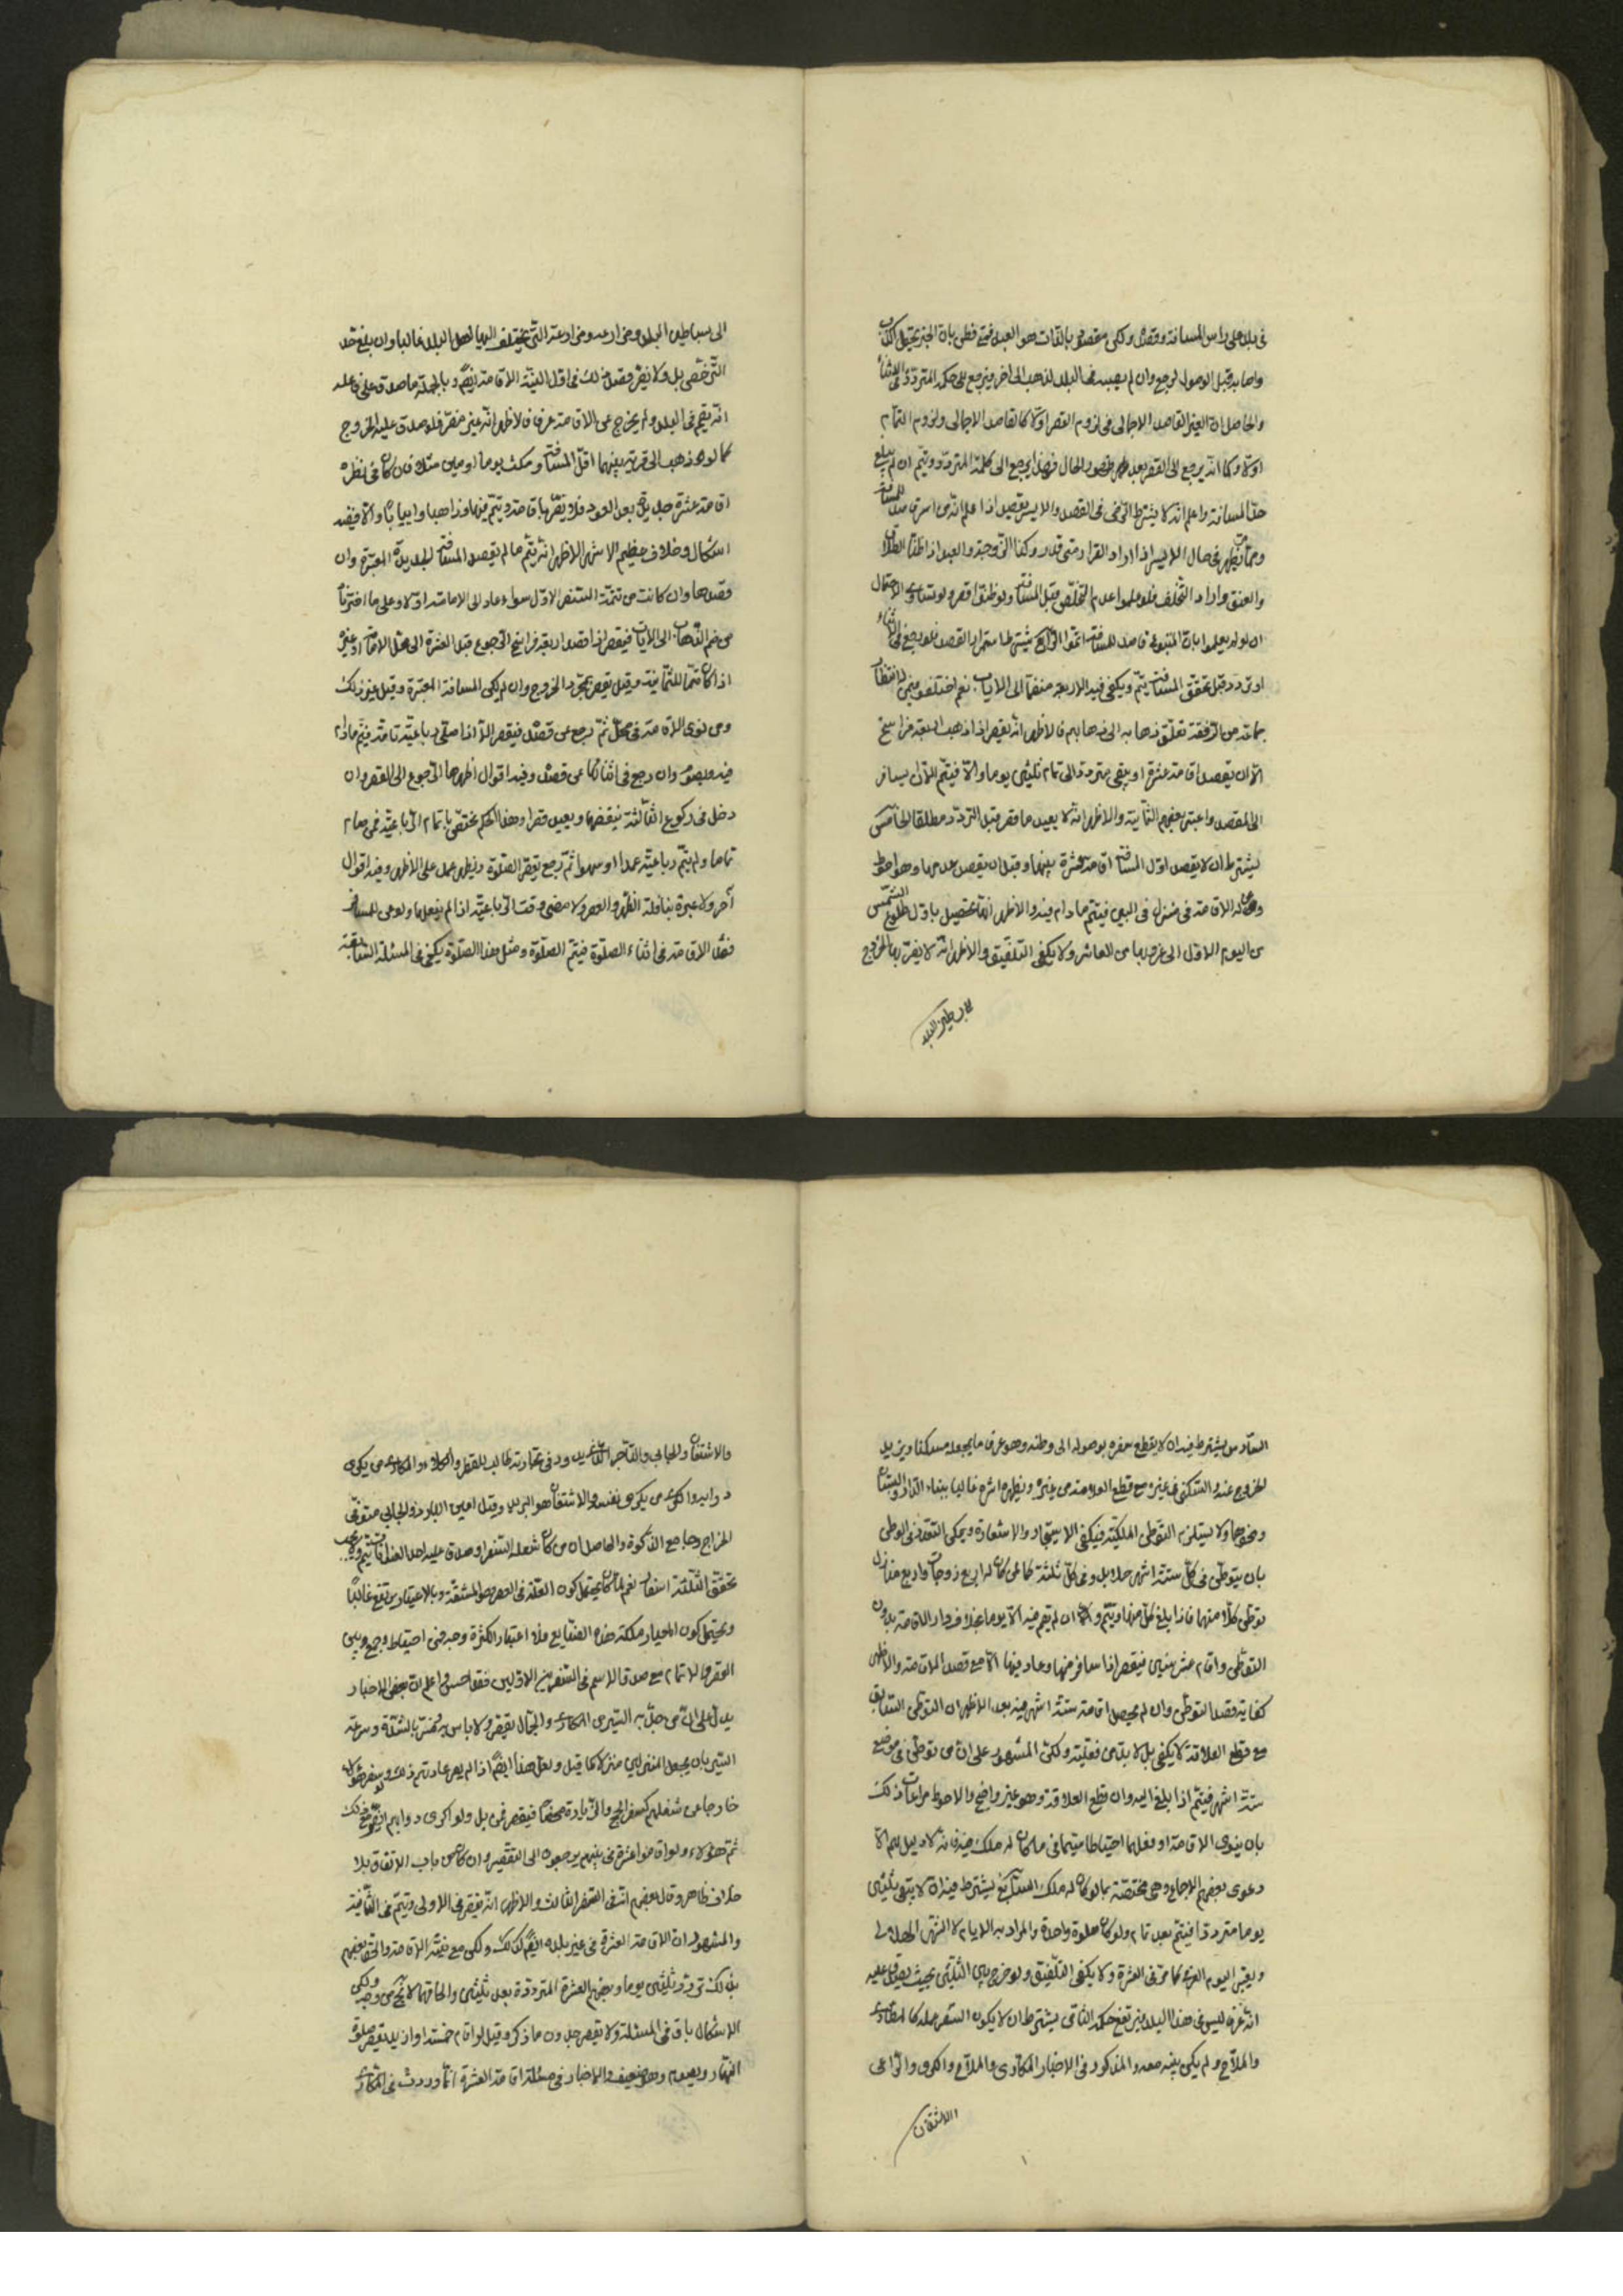 في بلد على راس المسافة وقصده ولكن مقصوده بالذات هو العبد فمتى فطن بان الخبر يحتمل الكذب
واصابه قبل الوصول لرجع وان لم يصبه في البلد لذهب الى اخر فيرجع الى حكم المتردد في الاثناء
والحاصل ان العبرة القاصد الاجمالي في لزوم القصر اولا كالقاصد الاجمالي ولزوم التمام
اولا وكما انه يرجع الى القصر بعد ظهور الحال فهذا يرجع الى حكمه المتردد ويتم ان لم يبلغ
حد المسافة واعلم انه لا يشترط الرضى في القصد والاسير يقصر اذا علم انه اسرى به للمسافة
ومما يظهر في حال الاسير اذا اراد الفرار متى قدر وكذا الزوجة والعبد اذا ظنا الطلاق
والعتق واراد التخلف فلو علموا عدم التخلص قبل المسافة ولو ظنوا قصروا ولو تساوى الاحتمال
او لو لم يعلموا بان المتبوع قاصد للمسافة اتموا الرابع يشترط استمرار القصد فلو رجع في الاثناء
او تردد قبل تحقق المسافة يتم ويكفي فيه الاربعة منضما الى الاياب نعم اختلفوا فيمن له انتظار
جماعة من الرفقة تعلق ذهابه الى ذهابهم فالاظهر انه يقصر اذا ذهب اربعة فراسخ
الا ان يقصد اقامة عشرة او يبقى مترددا الى تمام ثلثين يوما والا فيتم الا ان يسافر
الى المقصد واعتبر بعضهم الثمانية والاظهر انه لا يعيد ما قصر قبل التردد مطلقا الخامس
يشترط ان لا يقصد اول المسافة اقامة عشرة بينهما وقبل ان يقصد عدمها وهو احوط
الاقامة في منزل في البين فيتم ما دام فيه والاظهر انها تحصيل باول طلوع الشمس
من اليوم الاول الى غروبها من العاشر ولا يكفي التلفيق والاظهر انه لا يضر بها الخروج
الى بساطين البلد
الى بساطين البلد ومزارعه ومزارعته التي يختلف اليها اهل البلد غالبا وان بلغ حد
الترخص بل ولا يضر قصد ذلك في اول النية الاقامة ايضا وبالجملة ما صدق على فاعله
انه يقيم في البلد ولم يخرج عن الاقامة عرفا فالاظهر انه غير مضر فلو صدق عليه الخروج
كما لو ذهب الى قرية بينهما اقل المسافة ومكث يوما او يومين مثلا فان كان في نظره
اقامة عشرة جديدة بعد العود فلا يضر باقامته ويتم فيها وذاهبا وايابا والا ففيه
اشكال وخلاف عظيم الاشهر الاظهر انه يتم ما لم يقصد المسافة الجديدة المعتبرة وان
قصدها وان كانت من تتمة السفر الاول سواء عاد الى الاقامة اولا وعلى ما اخترنا
من ضم الذهاب الى الاياب فيقصر اذا قصد اربعة فراسخ الرجوع قبل العشرة الى محل الاقامة او غيره
اذا كان متمما للثمانية وقيل يقصر بمجرد الخروج وان لم يكن المسافة المعتبرة وقيل غير ذلك
ومن نوى الاقامة في محل ثم رجع عن قصده فيقصر الا اذا صلى رباعية تامة فيتم ما دام
فيه ويصوم وان رجع في اثنائها عن قصده وفيه اقوال اظهرها الرجوع الى القصر وان
دخل في ركوع الثالثة فينقضها ويعيد قصرا وهذا الحكم مختص باتمام الرباعية فمن صام
تماما ولم يتم رباعية عمدا او سهوا ثم رجع يقصر الصلوة ويفطر عمل على الاظهر وفيه اقوال
آخر ولا عبرة بنافلة الظهر والعصر ولا مضى وقت الرباعية اذا لم يفعلها ولو عن للمسافر
قصد الاقامة في اثناء الصلوة فيتم الصلوة ومثل هذا الصلوة يكفي في المسئلة السابقة
السادس يشترط فيه ان لا يقطع سفره بوصوله الى وطنه وهو عرفا ما يجعله مسكنا ويريد
الخروج عنه والسكنى في غيره مع قطع العلاقة من غيره ويظهر اثره غالبا ببناء الدار والبستان
ونحوهما ولا يستلزم التوطن الملكية فيكفي الاستيجار والاستعارة ويمكن التعدد في الوطن
بان يتوطن في كل ستة اشهر حلا بل وفي كل ثلثة كما لمن كان له اربع زوجات واربع منازل
توطن كلا منهما فاذا بلغ كل منها ويتم وان لم يقم فيه الا يوما بخلاف دار الاقامة بدون
التوطن واقام عشر سنين فيقصر اذا سافر منها وعاد فيها الا مع قصد الاقامة والاظهر
كفاية قصد التوطن وان لم يحصل اقامة ستة اشهر فيه بعد الاظهر ان التوطن السابق
مع قطع العلاقة لا يكفي بل لا بد من فعليته ولكن المشهور على ان من توطن في موضع
ستة اشهر فيتم اذا بلغ اليه وان قطع العلاقة وهو غير واضح والاحوط مراعات ذلك
بان ينوي الاقامة او يفعلهما احتياطا سيما في ما كان له ملك فيه فانه لا دليل لهم الا
دعوى بعضهم الاجماع وهي مختصة بما لو كان له ملك السابع يشترط فيه ان لا يبقى ثلثين
يوما مترددا فيتم بعد تمام ولو كان صلوة واحدة والمراد به الايام لا الشهر الهلالي
ويعتبر اليوم التام كما مر في العشرة ولا يكفي التلفيق ولو خرج بين الثلثين بحيث يصدق عليه
انه عرفا ليس في هذا البلد فيرتفع حكمه الثامن يشترط ان لا يكون السفر عمله كالمكاري
والملاح ولم يكن بيته معه والمذكور في الاخبار المكاري والملاح والكرى والراعي
والاشتقان
والاشتقان والجابي والتاجر الذي يدور في تجارته طالب للقطر والمكاري من يكري
دوابه والكرى من يكري نفسه والاشتقان هو البريد وقيل امين البيادر والجابي متوفى
الخراج وجامع الزكوة والحاصل ان من كان شغله السفر وصدق عليه احد العنوانات يتم
تحقق الثلثة اسفار نعم لما كان يحتمل كون العلة في القصر هو المشقة وبالاعتياد يرتفع غالبا
ويحتمل كون المعيار ملكة هذه الصنايع فلا اعتبار الكثرة وجه فمن احتياط وجمع بين
القصر والاتمام مع صدق الاسم في السفرين الاولين فقد احسن واعلم ان بعض الاخبار
يدل على ان من جد به السير من المكاري والجمال يقصر ولا باس به تفسر بالشدة وسرعة
السير بان يجعل المنزلين منزلا كما قيل ولعل هذا ايضا اذا لم يصر عادتهم ذلك وسفر هؤلاء
خارجا عن شغلهم كسفر الحج والزيارة محضا فيقصرون بل ولو اكرى دوابهم ايضا مع ذلك
ثم هؤلاء ولو اقاموا عشرة في بيتهم يرجعون الى التقصير وان كان من باب الاتفاق بلا
خلاف ظاهر وقال بعضهم انه في السفر الثالث والاظهر انه يقصر في الاولى ويتم في الثانية
والمشهور ان الاقامة العشرة في غير بلده ايضا كذلك ولكن مع نية الاقامة والحق بعضهم
بذلك تردد ثلثين يوما وبعضهم العشرة المترددة بعد ثلثين والحاقهما لا يخ من وجه ولكن
الاشكال باق في المسئلة ولا يقصر بدون ما ذكر وقيل لو اقام خمسة او ازيد يقصر صلوة
النهار ويصوم وهو ضعيف والاخبار في مسئلة اقامة العشرة انما وردت في المكاري